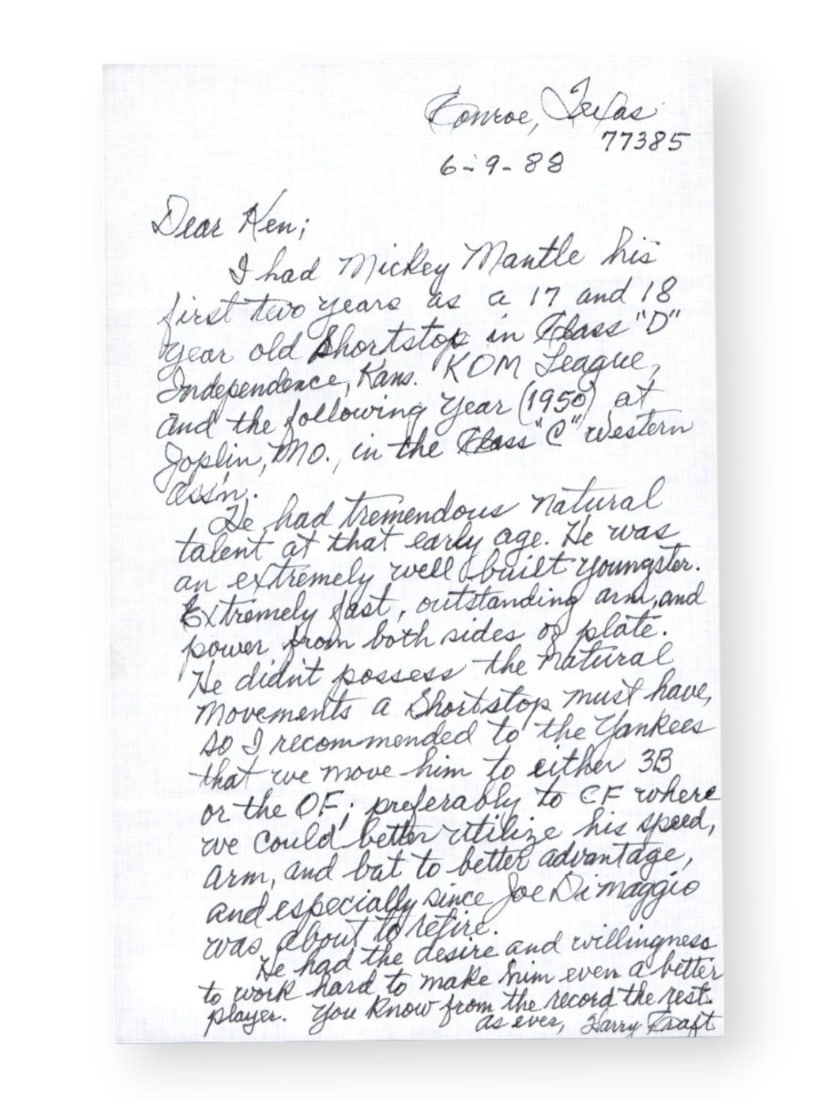 Conroe, Texas
77385
6-9-88
Dear Ken;
I had Mickey Mantle his
first two years as a 17 and 18
year old Shortstop in Class "D"
Independence, Kans. KOM League,
and the following year (1950) at
Joplin, Mo., in the Class "C" western
ass'n.
He had tremendous natural
talent at that early age. He was
an extremely well built youngster.
Extremely fast, outstanding arm, and
power from both sides of plate.
He didn't possess the natural
movements a Shortstop must have,
so I recommended to the Yankees
that we move him to either 3B
or the OF; preferably to CF where
we could better utilize his speed,
arm, and bat to better advantage,
and especially since Joe Dimaggio
was about to retire.
He had the desire and willingness
to work hard to make him even a better
player. You know from the record the rest.
as ever, Harry Craft